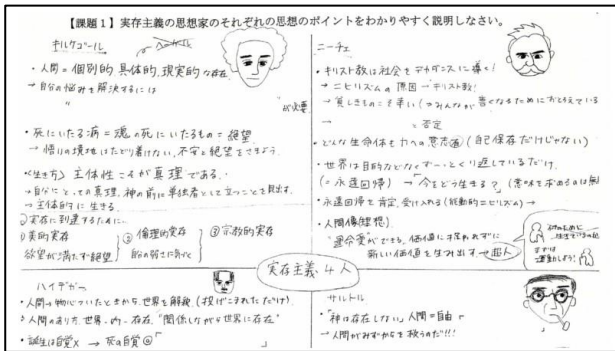 【課題1】実存主義の思想家のそれぞれの思想のポイントをわかりやすく説明しなさい。
キルケゴール
・人間=個別的,具体的,現実的な存在
→自分の悩みを解決するには
〃
が必要
・死にいたる病=魂の死にいたるもの=絶望
→悟りの境地はたどり着けない,不安と絶望をさまよう
〈生き方〉主体性こそが真理である.
→自分にとっての真理,神の前に単独者として立つことを見出す.
→主体的に生きる.
実存に到達するために…
①美的実存
欲望が満たず絶望
②倫理的実存
③宗教的実存
ニーチェ
・キリスト教は社会をデカダンスに導く!
→ニヒリズムの原因→キリスト教!
=否定
・どんな生命体も力への意志(自己保存だけじゃない)
・世界は目的などなくずーっとくり返しているだけ.
(=永遠回帰)→「今をどう生きる?」
・永遠回帰を肯定,受け入れる(能動的ニヒリズム)→
・人間像(理想)
"運命愛"ができる,価値に捉われずに
新しい価値を生み出す→超人
実存主義4人
ハイデガー
・人間→物心ついたときから,世界を解釈,(投げこまれただけ)
・人間のあり方,世界-内-存在"関係しながら世界に存在"
・誕生は自覚×→死の自覚
サルトル
・「神は存在しない」人間=自由
→人間がみずからを救うのだ!!!